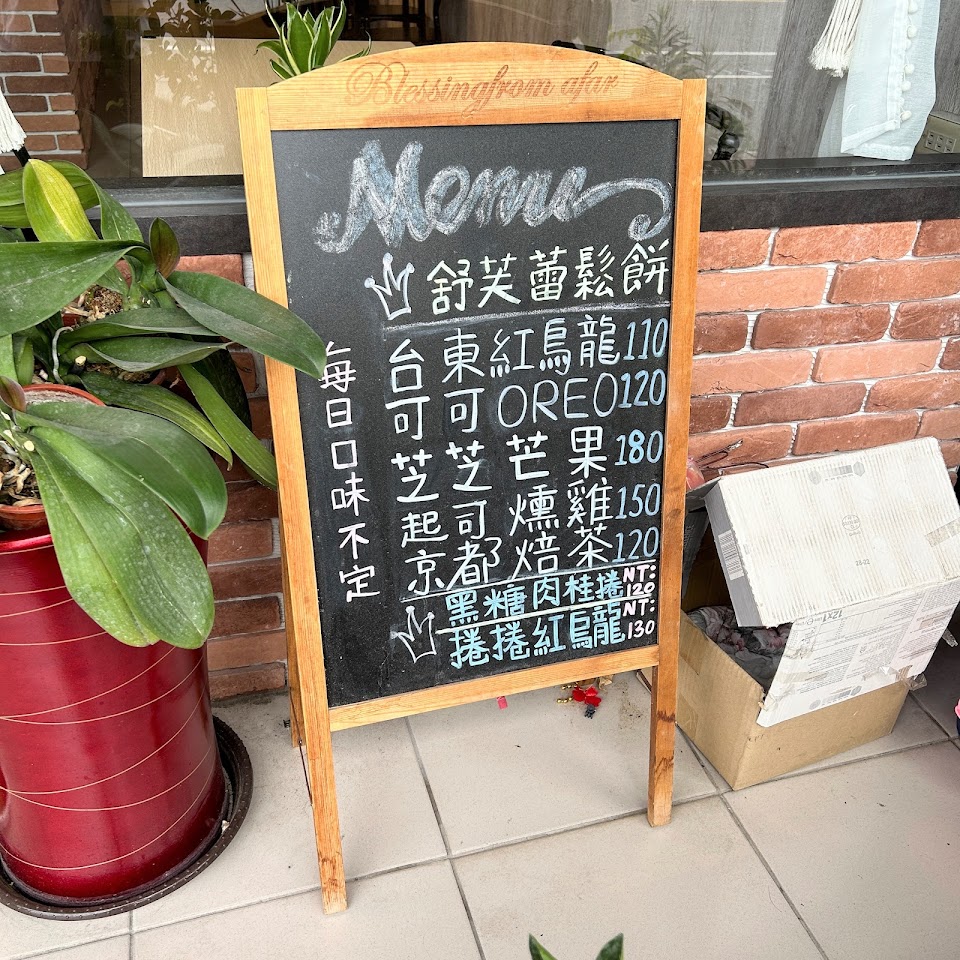 Blessing from afar
Menu
舒芙蕾鬆餅
每日口味不定
台東紅烏龍110
可可OREO120
芝芝芒果180
起可燻雞150
京都焙茶120
黑糖肉桂捲NT:120
捲捲紅烏龍NT:130